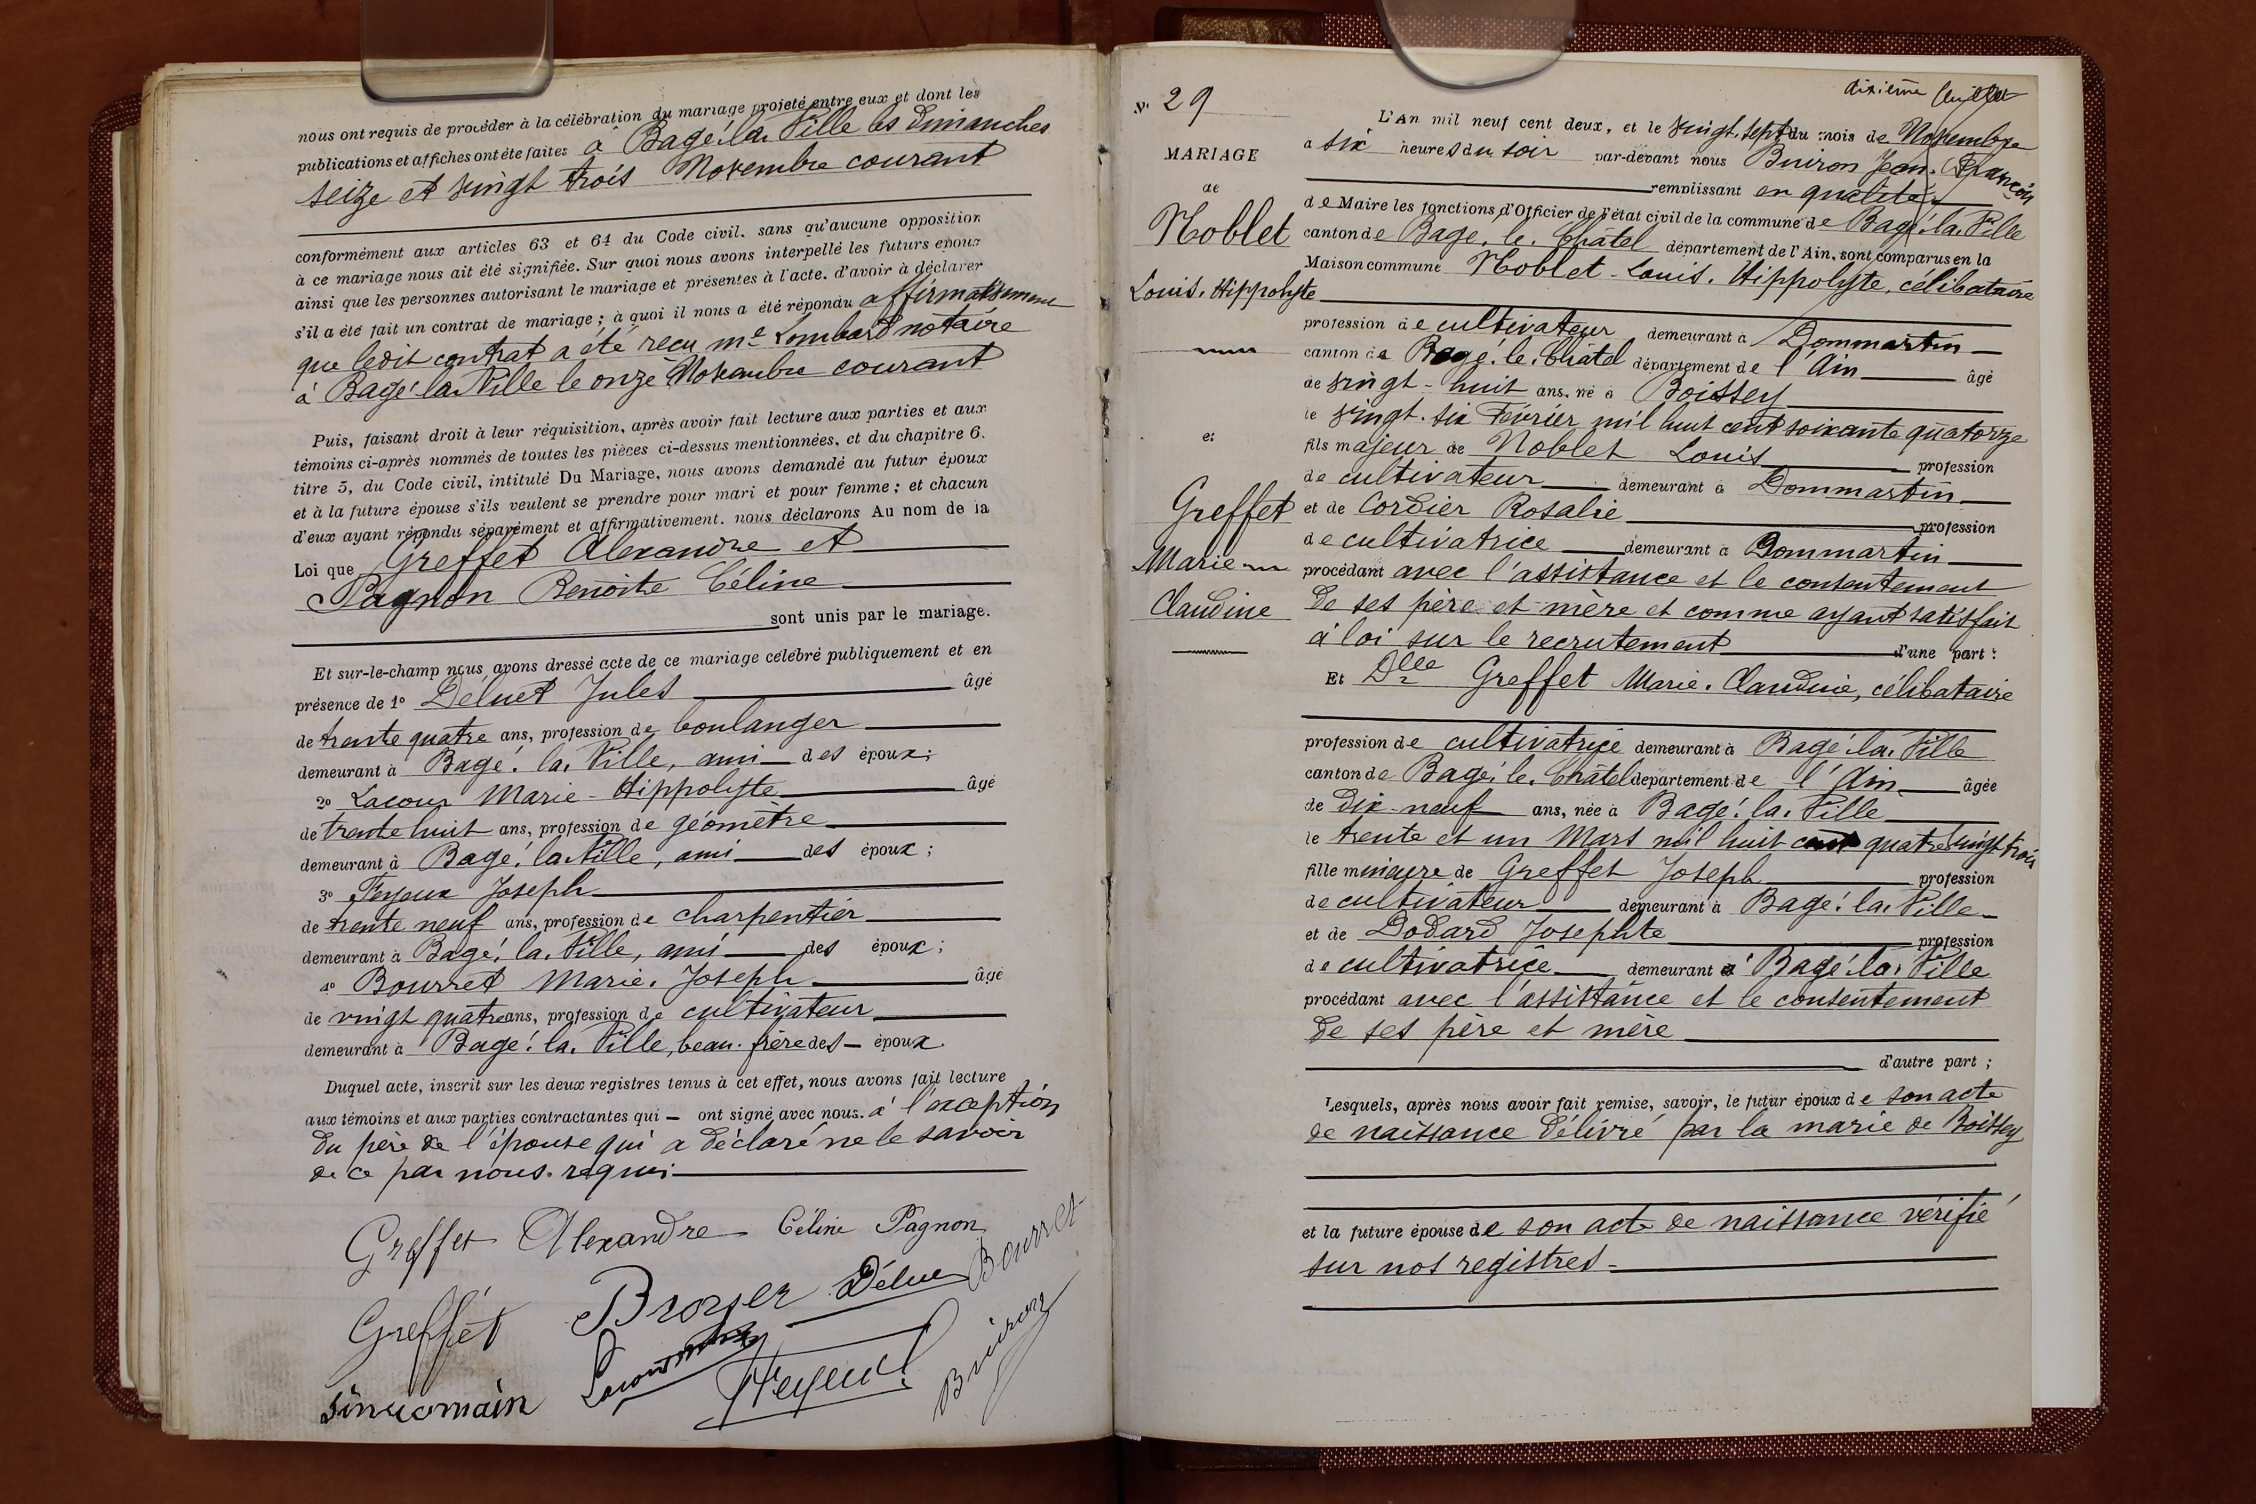 nous ont requis de procéder à la célébration du mariage projeté entre eux et dont les
publications et affiches ont été faites à Bagé-la-Ville les Dimanches
seize et vingt trois Novembre courant
conformément aux articles 63 et 64 du Code civil, sans qu'aucune opposition
à ce mariage nous ait été signifiée. Sur quoi nous avons interpellé les futurs époux
ainsi que les personnes autorisant le mariage et présentes à l'acte, d'avoir à déclarer
s'il a été fait un contrat de mariage ; à quoi il nous a été répondu affirmativement
que ledit contrat a été reçu Me Lombard notaire
à Bagé-la-Ville le onze Novembre courant
Puis, faisant droit à leur réquisition, après avoir fait lecture aux parties et aux
témoins ci-après nommés de toutes les pièces ci-dessus mentionnées, et du chapitre 6,
titre 5, du Code civil, intitulé Du Mariage, nous avons demandé au futur époux
et à la future épouse s'ils veulent se prendre pour mari et pour femme ; et chacun
d'eux ayant répondu séparément et affirmativement, nous déclarons Au nom de la
Loi que Greffet Alexandre et
Pagnon Benoite Céline
sont unis par le mariage.
Et sur-le-champ nous avons dressé acte de ce mariage célébré publiquement et en
présence de 1° Deluet Jules âgé
de trente quatre ans, profession de boulanger
demeurant à Bagé-la-Ville, ami des époux ;
2° Lacour Marie-Hippolyte âgé
de trente huit ans, profession de géomètre
demeurant à Bagé-la-Ville, ami des époux ;
3° Feyeux Joseph
de trente neuf ans, profession de charpentier
demeurant à Bagé-la-Ville, ami des époux ;
4° Bourret Marie-Joseph âgé
de vingt quatre ans, profession de cultivateur
demeurant à Bagé-la-Ville, beau-frère des époux.
Duquel acte, inscrit sur les deux registres tenus à cet effet, nous avons fait lecture
aux témoins et aux parties contractantes qui ont signé avec nous à l'exception
du père de l'épouse qui a déclaré ne le savoir
de ce par nous requis
Greffet Alexandre Céline Pagnon
Greffet Broyer Délue Bourret
Feyeux Buiron
dixième feuillet
N° 29
MARIAGE
de
Noblet
Louis-Hippolyte
et
Greffet
Marie
Claudine
L'An mil neuf cent deux, et le vingt-sept du mois de Novembre
a six heures du soir par-devant nous Buiron Jean-François
remplissant en qualité
de Maire les fonctions d'Officier de l'état civil de la commune de Bagé-la-Ville
canton de Bagé-le-Châtel département de l'Ain, sont comparus en la
Maison commune Noblet Louis-Hippolyte, célibataire
profession de cultivateur demeurant à Dommartin
canton de Bagé-le-Châtel département de l'Ain âgé
de vingt-huit ans, né à Boissey
le vingt-six Février mil huit cent soixante quatorze
fils majeur de Noblet Louis profession
de cultivateur demeurant à Dommartin
et de Cordier Rosalie profession
de cultivatrice demeurant à Dommartin
procédant avec l'assistance et le consentement
de ses père et mère et comme ayant satisfait
à loi sur le recrutement d'une part :
Et Dlle Greffet Marie-Claudine, célibataire
profession de cultivatrice demeurant à Bagé-la-Ville
canton de Bagé-le-Châtel département de l'Ain âgée
de dix-neuf ans, née à Bagé-la-Ville
le trente et un Mars mil huit cent quatre vingt trois
fille mineure de Greffet Joseph profession
de cultivateur demeurant à Bagé-la-Ville
et de Dodard Josephte profession
de cultivatrice demeurant à Bagé-la-Ville
procédant avec l'assistance et le consentement
de ses père et mère
d'autre part ;
Lesquels, après nous avoir fait remise, savoir, le futur époux de son acte
de naissance délivré par la marie de Boissey
et la future épouse de son acte de naissance vérifié
sur nos registres